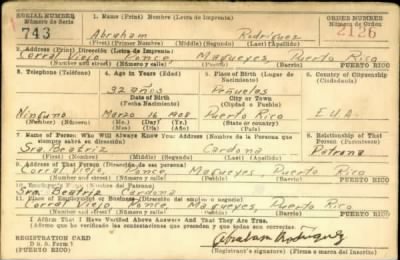 SERIAL NUMBER 1. Name (Print) Nombre (Letra de Imprenta) ORDER NUMBER
Número de Serie Número de Orden
743 Abraham Rodríguez 2126
(First) (Primer Nombre) (Middle) (Segundo) (Last) (Apellido)
2. Address (Print) Dirección (Letra de Imprenta)
Corral Viejo Ponce Magueyes, Puerto Rico
(Number and street) (Número y calle) (Pueblo) (Barrio) PUERTO RICO
3. Telephone (Teléfono) 4. Age in Years (Edad) 5. Place of Birth (Lugar de Nacimiento) 6. Country of Citizenship (Ciudadanía)
32 años Peñuelas
Date of Birth City or Town
(Fecha Nacimiento) (Ciudad o Pueblo)
Ninguno Marzo 16 1908 Puerto Rico E U A
(Number) (Número) (Mo.) (Day) (Yr.) (State or country)
7. Name of Person Who Will Always Know Your Address (Nombre de la Persona que siempre sabrá su dirección) 8. Relationship of That Person (Parentesco)
Sra. Beatriz Cardona Patrona
(First) (Nombre) (Middle) (Segundo) (Last) (Apellido)
9. Address of That Person (Dirección de esa persona)
Corral Viejo, Ponce, Magueyes, Puerto Rico
(Number and street) (Número y calle) (Pueblo) (Barrio) PUERTO RICO
10. Employer's Name (Nombre del Patrono)
Sra. Beatriz Cardona
11. Place of Employment or Business (Dirección del empleo o negocio)
Corral Viejo Ponce, Magueyes, Puerto Rico
(Number and street) (Número y calle) (Pueblo) (Barrio) PUERTO RICO
I Affirm That I Have Verified Above Answers And That They Are True.
(Afirmo que he verificado las contestaciones que preceden y que todas son ciertas)
REGISTRATION CARD
D. S. S. Form 1
(PUERTO RICO)
Abraham Rodríguez
(Registrant's signature) (Firma o marca del Inscrito)